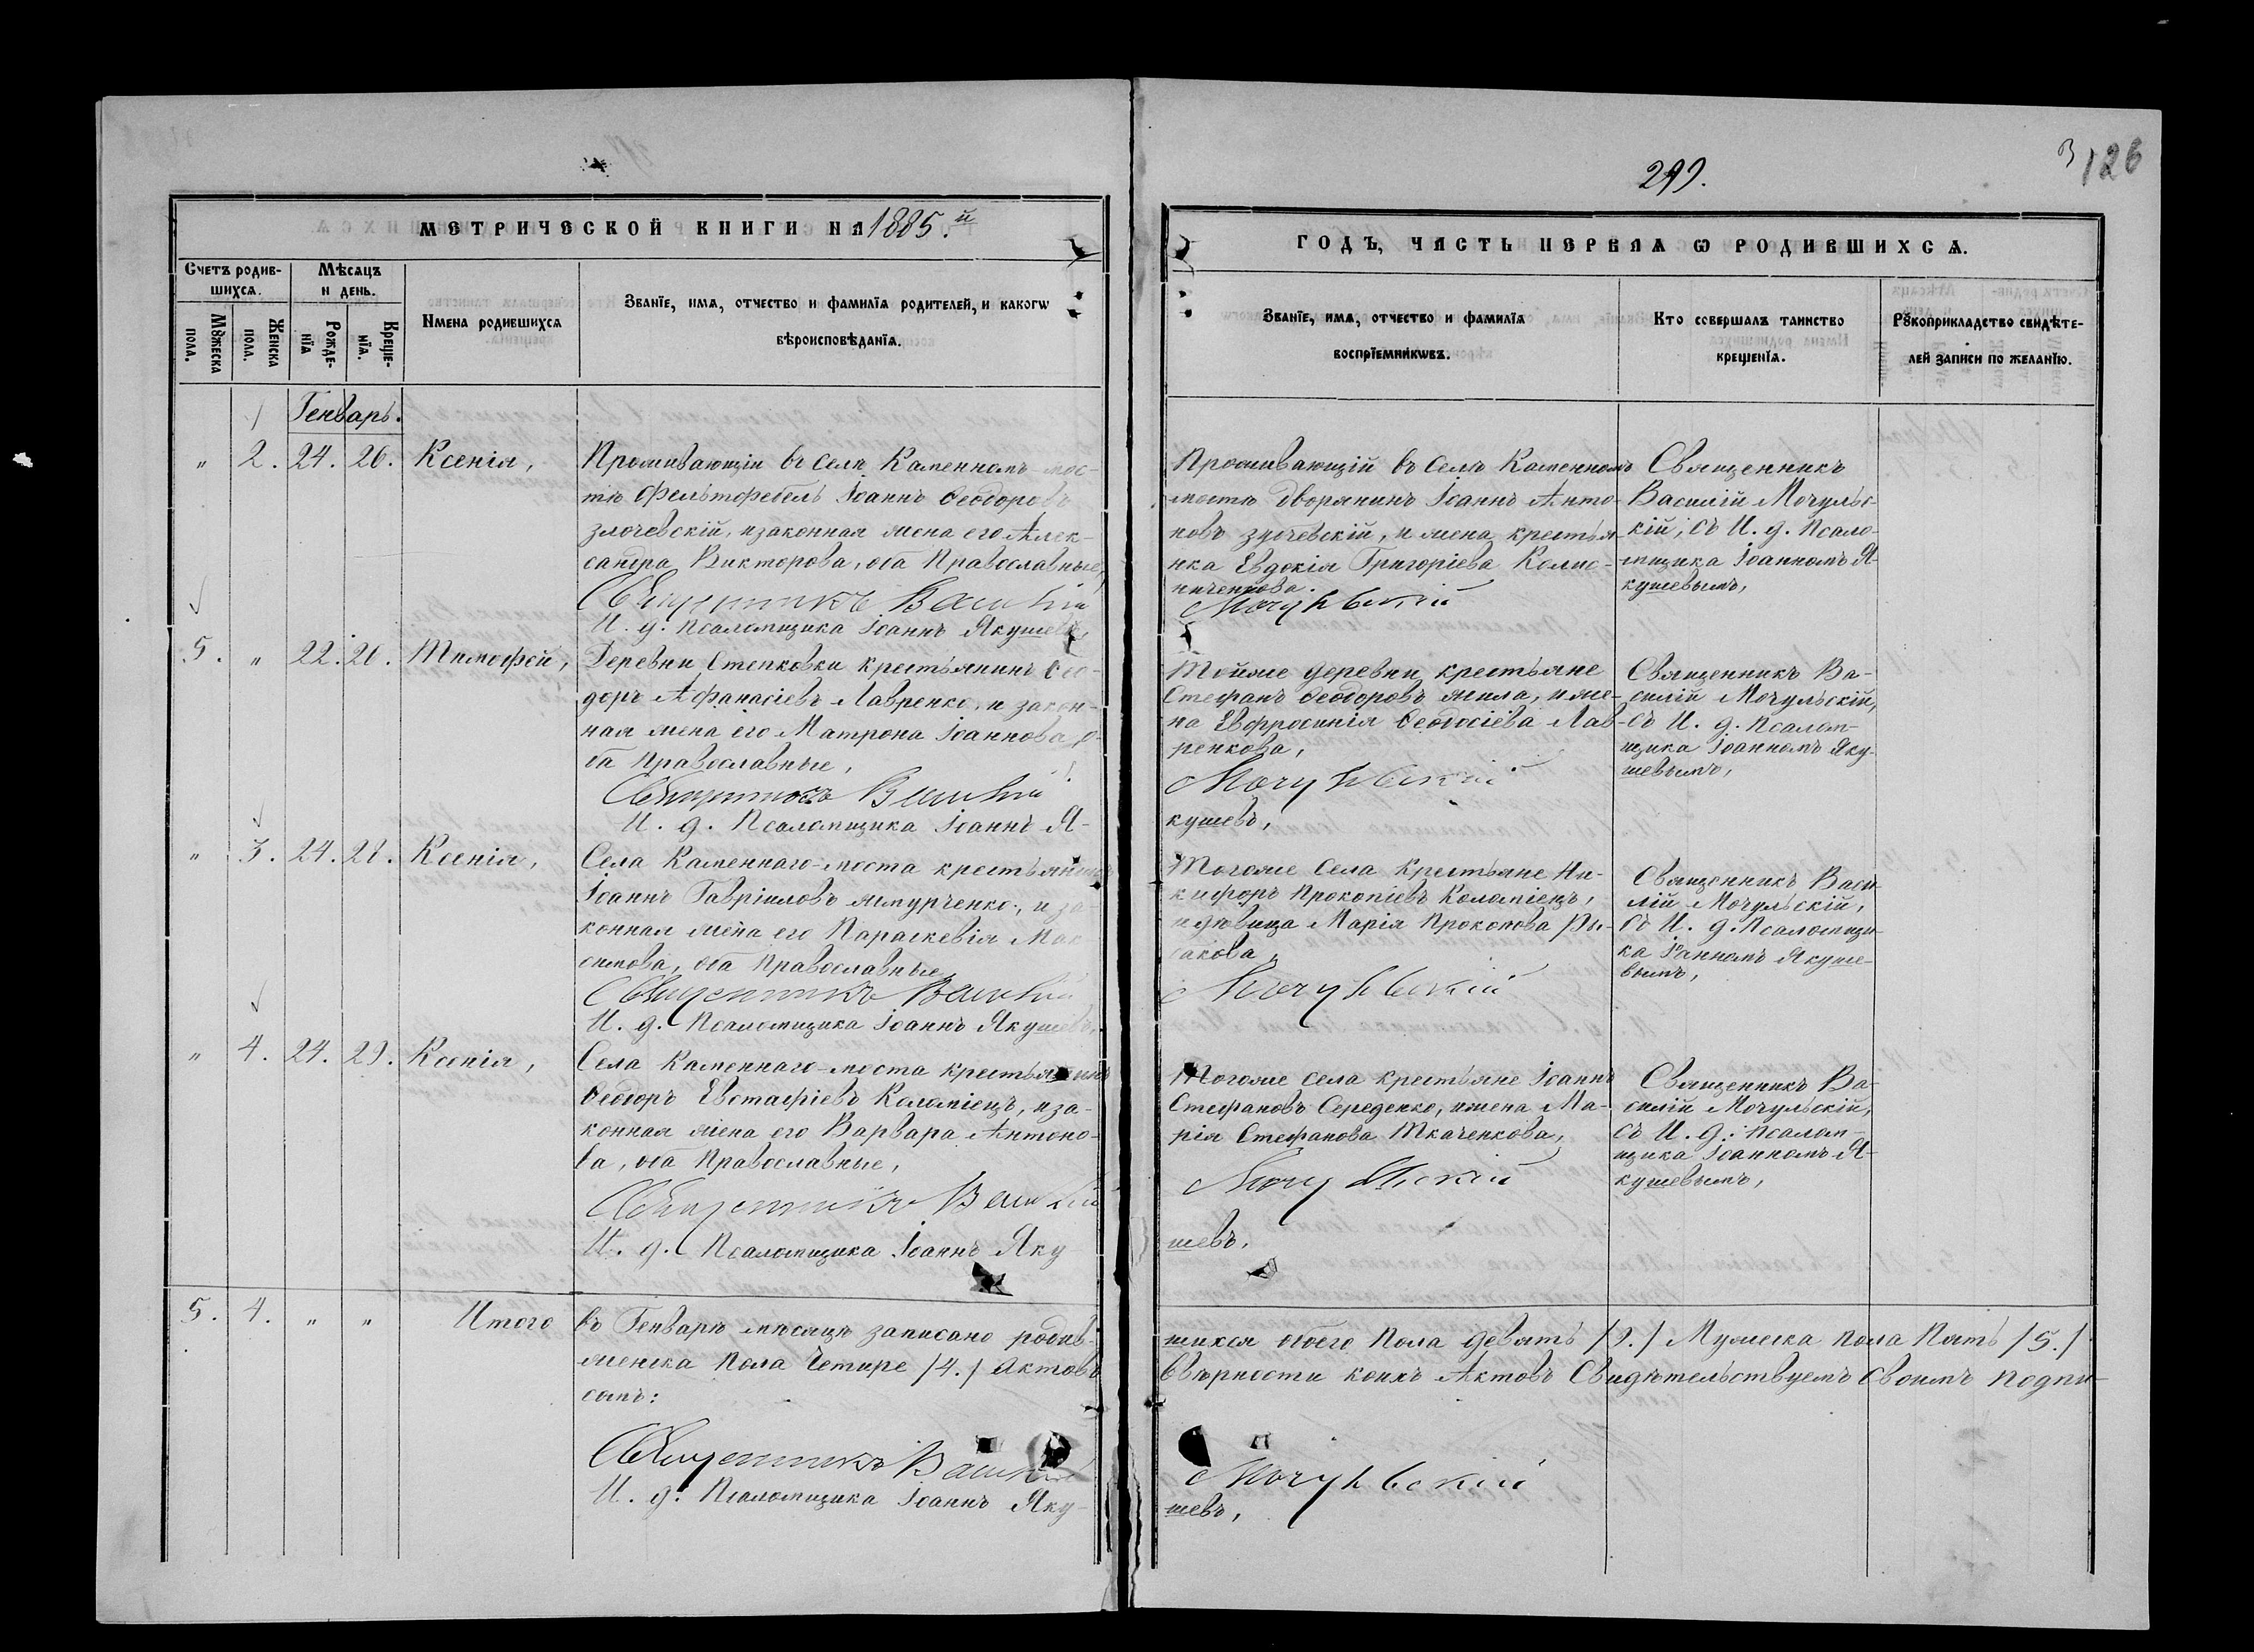 299.
126
МЕТРИЧЕСКОЙ КНИГИ НА 1885.й
ГОДЪ, ЧАСТЬ ПЕРВАЯ Ѡ РОДИВШИХСѦ.
Счетъ родив-
шихсѧ.
Мѣсѧцъ
и день.
Мꙋжеска
пола.
Женска
пола.
Рожде-
нїѧ
Креще-
нїѧ.
Имена родившихсѧ
Званїе, имѧ, отчество и фамилїѧ родителей, и какогѡ
вѣроисповѣданїѧ.
Званїе, имѧ, отчество и фамилїѧ
воспрїемникѡвъ.
Кто совершалъ таинство
крещенїѧ.
Рꙋкоприкладство свидѣте-
лей записи по желанїю.
Генварь.
" 2. 24. 26. Ксенія,
Проживающіи въ селѣ Каменномъ-мос-
тѣ Фельтфебель Іоаннъ Ѳеодоровъ
Злочевскій, и законная жена его Алек-
сандра Викторова, оба Православные,
Священникъ Василій
И. д. Псаломщика Іоаннъ Якушевъ,
Проживающій въ селѣ Каменномъ
мостѣ дворянинъ Іоаннъ Анто-
новъ, и жена крестья-
нка Евдокія Григоріева
Мочульскій
Священникъ
Василій Мочульс-
кій, съ И. д. Псало-
мщика Іоанномъ Я-
кушевымъ,
5. " 22. 26. Тимофей,
Деревни Степковки крестьянинъ Ѳео-
доръ Афанасіевъ Лавренко, и закон-
ная жена его Матрона Іоаннова, о-
ба Православные,
Священникъ Василій
И. д. Псаломщика Іоаннъ Я-
Тойже деревни крестьяне
Стефанъ Ѳеодоровъ Жила, и же-
на Евфросинія Ѳеодосіева Лав-
ренкова,
Мочульскій
кушевъ,
Священникъ Ва-
силій Мочульскій,
съ И. д. Псалом-
щика Іоанномъ Яку-
шевымъ,
" 3. 24. 28. Ксенія,
Села Каменнаго-моста крестьянинъ
Іоаннъ Гавріиловъ Жмурченко, и за-
конная жена его Параскевія Мак-
симова, оба Православные,
Священникъ Василій
И. д. Псаломщика Іоаннъ Якушевъ,
Тогоже села крестьяне Ни-
кифоръ Прокопіевъ Коломіецъ,
и дѣвица Марія Прокопова
Мочульскій
Священникъ Васи-
лій Мочульскій,
съ И. д. Псаломщи-
ка Іоанномъ Якуше-
вымъ,
" 4. 24. 29. Ксенія,
Села Каменнаго-моста крестьянинъ
Ѳеодоръ Евстафіевъ Коломіецъ, и за-
конная жена его Варвара Антоно-
ва, оба Православные,
Священникъ Василій
И. д. Псаломщика Іоаннъ Яку
Тогоже села крестьяне Іоаннъ
Стефановъ Середенко, и жена Ма-
рія Стефанова Ткаченкова,
Мочульскій
шевъ.
Священникъ Ва-
силій Мочульскій,
съ И. д. Псалом-
щика Іоанномъ Я-
кушевымъ,
5. 4. " " Итого въ Генварѣ мѣсяцѣ записано родив-
шихся обоего пола девять /9./ Мужеска пола Пять /5./
женска пола Четыре /4./ Актовъ
Ввѣрности коихъ Актовъ Свидѣтельствуемъ Своимъ подпи-
сомъ:
Священникъ Василій Мочульскій
И. д. Псаломщика Іоаннъ Яку-
шевъ,